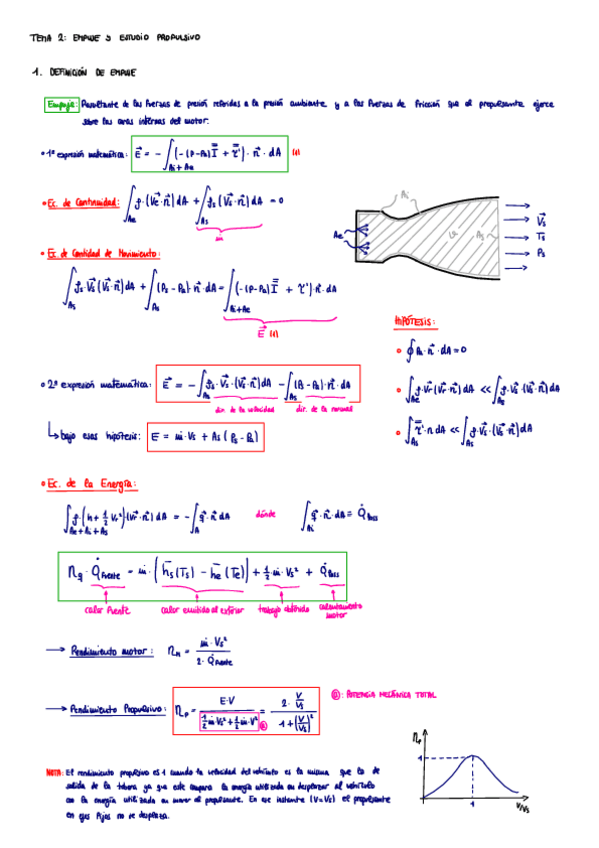 TEMA 2: EMPUJE Y ESTUDIO PROPULSIVO
1. DEFINICIÓN DE EMPUJE
Empuje: Resultante de las fuerzas de presión referidas a la presión ambiente y a las fuerzas de fricción que el propulsante ejerce
sobre las caras internas del motor.
• 1ª expresión matemática: E⃗ = - ∫_{Ai+Ae} (-(P-Pa) I̿ + τ̿') · n⃗ · dA (1)
• Ec. de Continuidad: ∫_{Ae} ρ·(Ve·n⃗) dA + ∫_{As} ρs (Vs·n⃗) dA = 0
ṁ
Ai
Ae
As
V⃗s
Ts
Ps
• Ec de Cantidad de Movimiento:
∫_{As} ρs·V⃗s (V⃗s·n⃗) dA + ∫_{As} (Ps - Pa)·n⃗·dA = ∫_{Ai+Ae} (-(P-Pa) I̿ + τ')·n⃗·dA
E⃗ (1)
HIPÓTESIS:
• ∮ Pa·n⃗·dA = 0
• 2ª expresión matemática: E⃗ = - ∫_{As} ρs·V⃗s·(V⃗s·n⃗) dA - ∫_{As} (Ps - Pa)·n⃗·dA
dir. de la velocidad
dir. de la normal
• ∫_{Ae} ρ·V⃗r (V⃗r·n⃗) dA << ∫_{As} ρ·V⃗s (V⃗s·n⃗) dA
↳ bajo esas hipótesis: E = ṁ·Vs + As (Ps - Pa)
• ∫_{As} τ̿'·n dA << ∫_{As} ρ·V⃗s·(V⃗s·n⃗) dA
• Ec. de la Energía:
∫_{Ae+Ai+As} ρ (h + 1/2 Vr²)(V⃗r·n⃗) dA = - ∫_{A} q⃗·n⃗ dA dónde ∫_{Ai} q⃗·n⃗ dA = Q̇loss
ηq·Q̇fuente = ṁ·(hs(Ts) - he(Te)) + 1/2·ṁ·Vs² + Q̇loss
calor fuente
calor emitido al exterior
trabajo obtenido
calentamiento
motor
→ Rendimiento motor: ηM = ṁ·Vs² / 2·Q̇fuente
→ Rendimiento Propulsivo: ηp = E·V / (1/2 ṁ·Vs² + 1/2 ṁ·V²) @ = 2·(V/Vs) / (1+(V/Vs)²)
@: POTENCIA MECÁNICA TOTAL
NOTA: El rendimiento propulsivo es 1 cuando la velocidad del vehículo es la misma que la de
salida de la tobera ya que este compara la energía utilizada en desplazar al vehículo
con la energía utilizada en mover al propulsante. En ese instante (V=Vs) el propulsante
en ejes fijos no se desplaza.
ηp
1
1
V/Vs